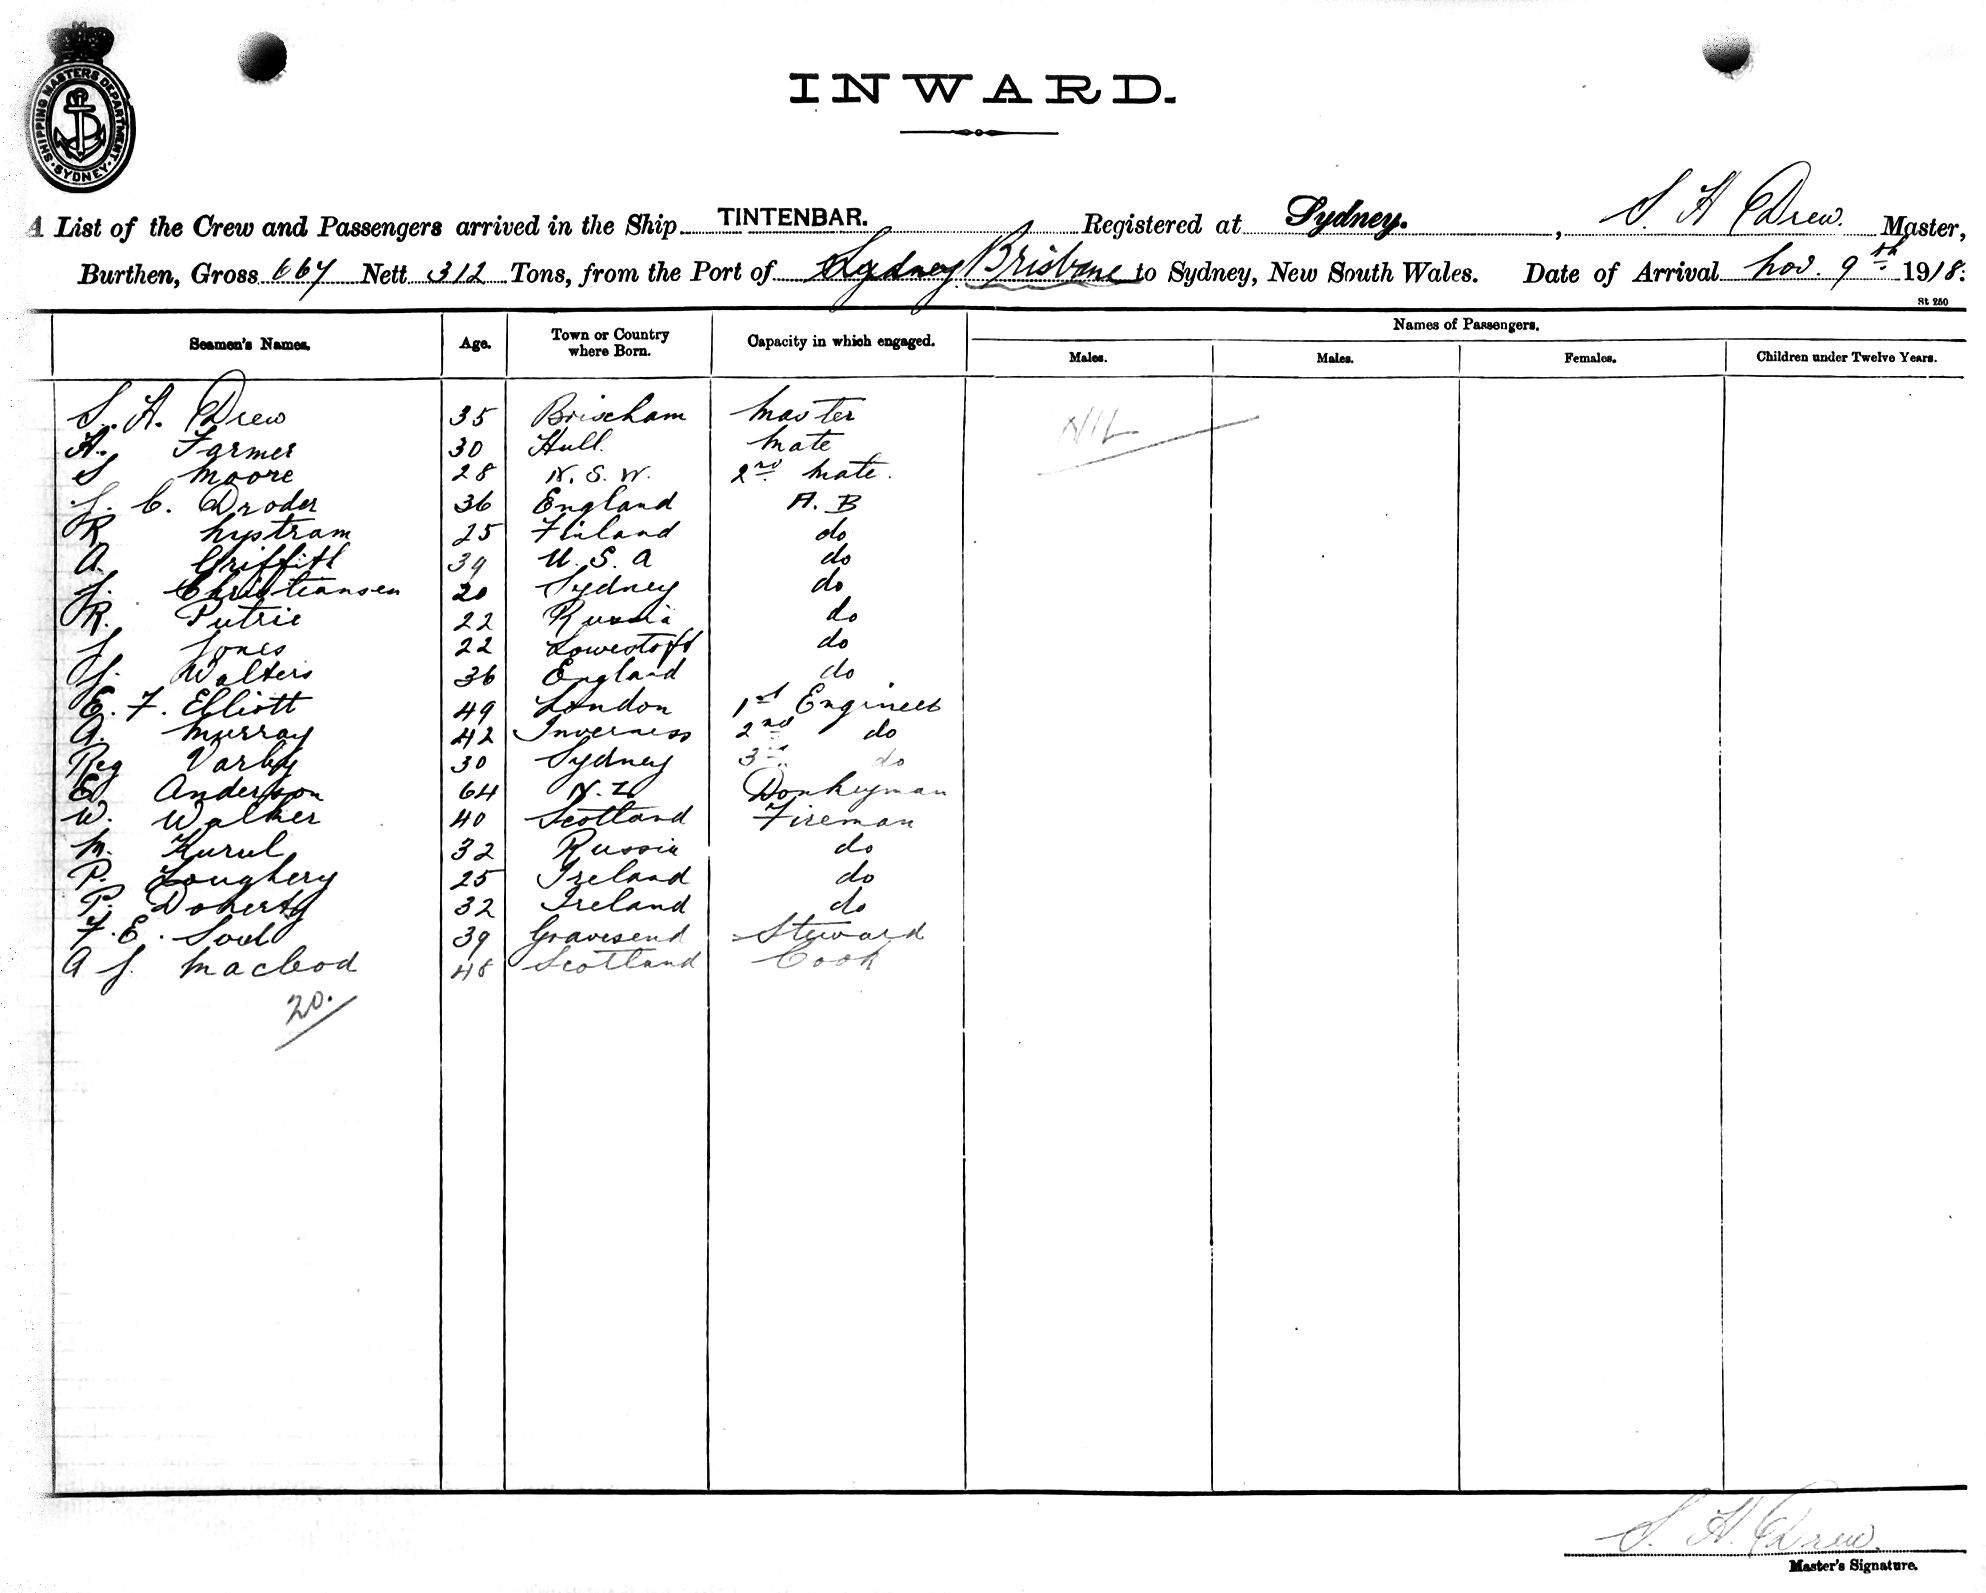 SHIPPING MASTERS DEPARTMENT · SYDNEY ·
INWARD.
A List of the Crew and Passengers arrived in the Ship TINTENBAR. Registered at Sydney. , S H Drew. Master,
Burthen, Gross 667 Nett 312 Tons, from the Port of Sydney Brisbane to Sydney, New South Wales. Date of Arrival Nov. 9th 1918.
St 250
Seamen's Names. Age. Town or Country where Born. Capacity in which engaged. Names of Passengers.
Males. Males. Females. Children under Twelve Years.
S. H. Drew 35 Brixham Master NIL
A. Farmer 30 Hull. Mate
S Moore 28 N. S. W. 2nd Mate.
C. Droder 36 England A. B
R Nystram 25 Finland do
A. Griffith 39 U. S. A do
J. Christiansen 20 Sydney do
R. Putrie 22 Russia do
J Jones 22 Lowestoft do
J. Walters 36 England do
E. F. Elliott 49 London 1st Engineer
A. Murray 42 Inverness 2nd do
Reg Varby 30 Sydney 3rd do
E Anderson 64 N. Z Donkeyman
W. Walker 40 Scotland Fireman
M. Kurul 32 Russia do
P. Loughery 25 Ireland do
P. Doherty 32 Ireland do
F. E. Soul 39 Gravesend Steward
A J. Macleod 48 Scotland Cook
20.
S. H. Drew.
Master's Signature.